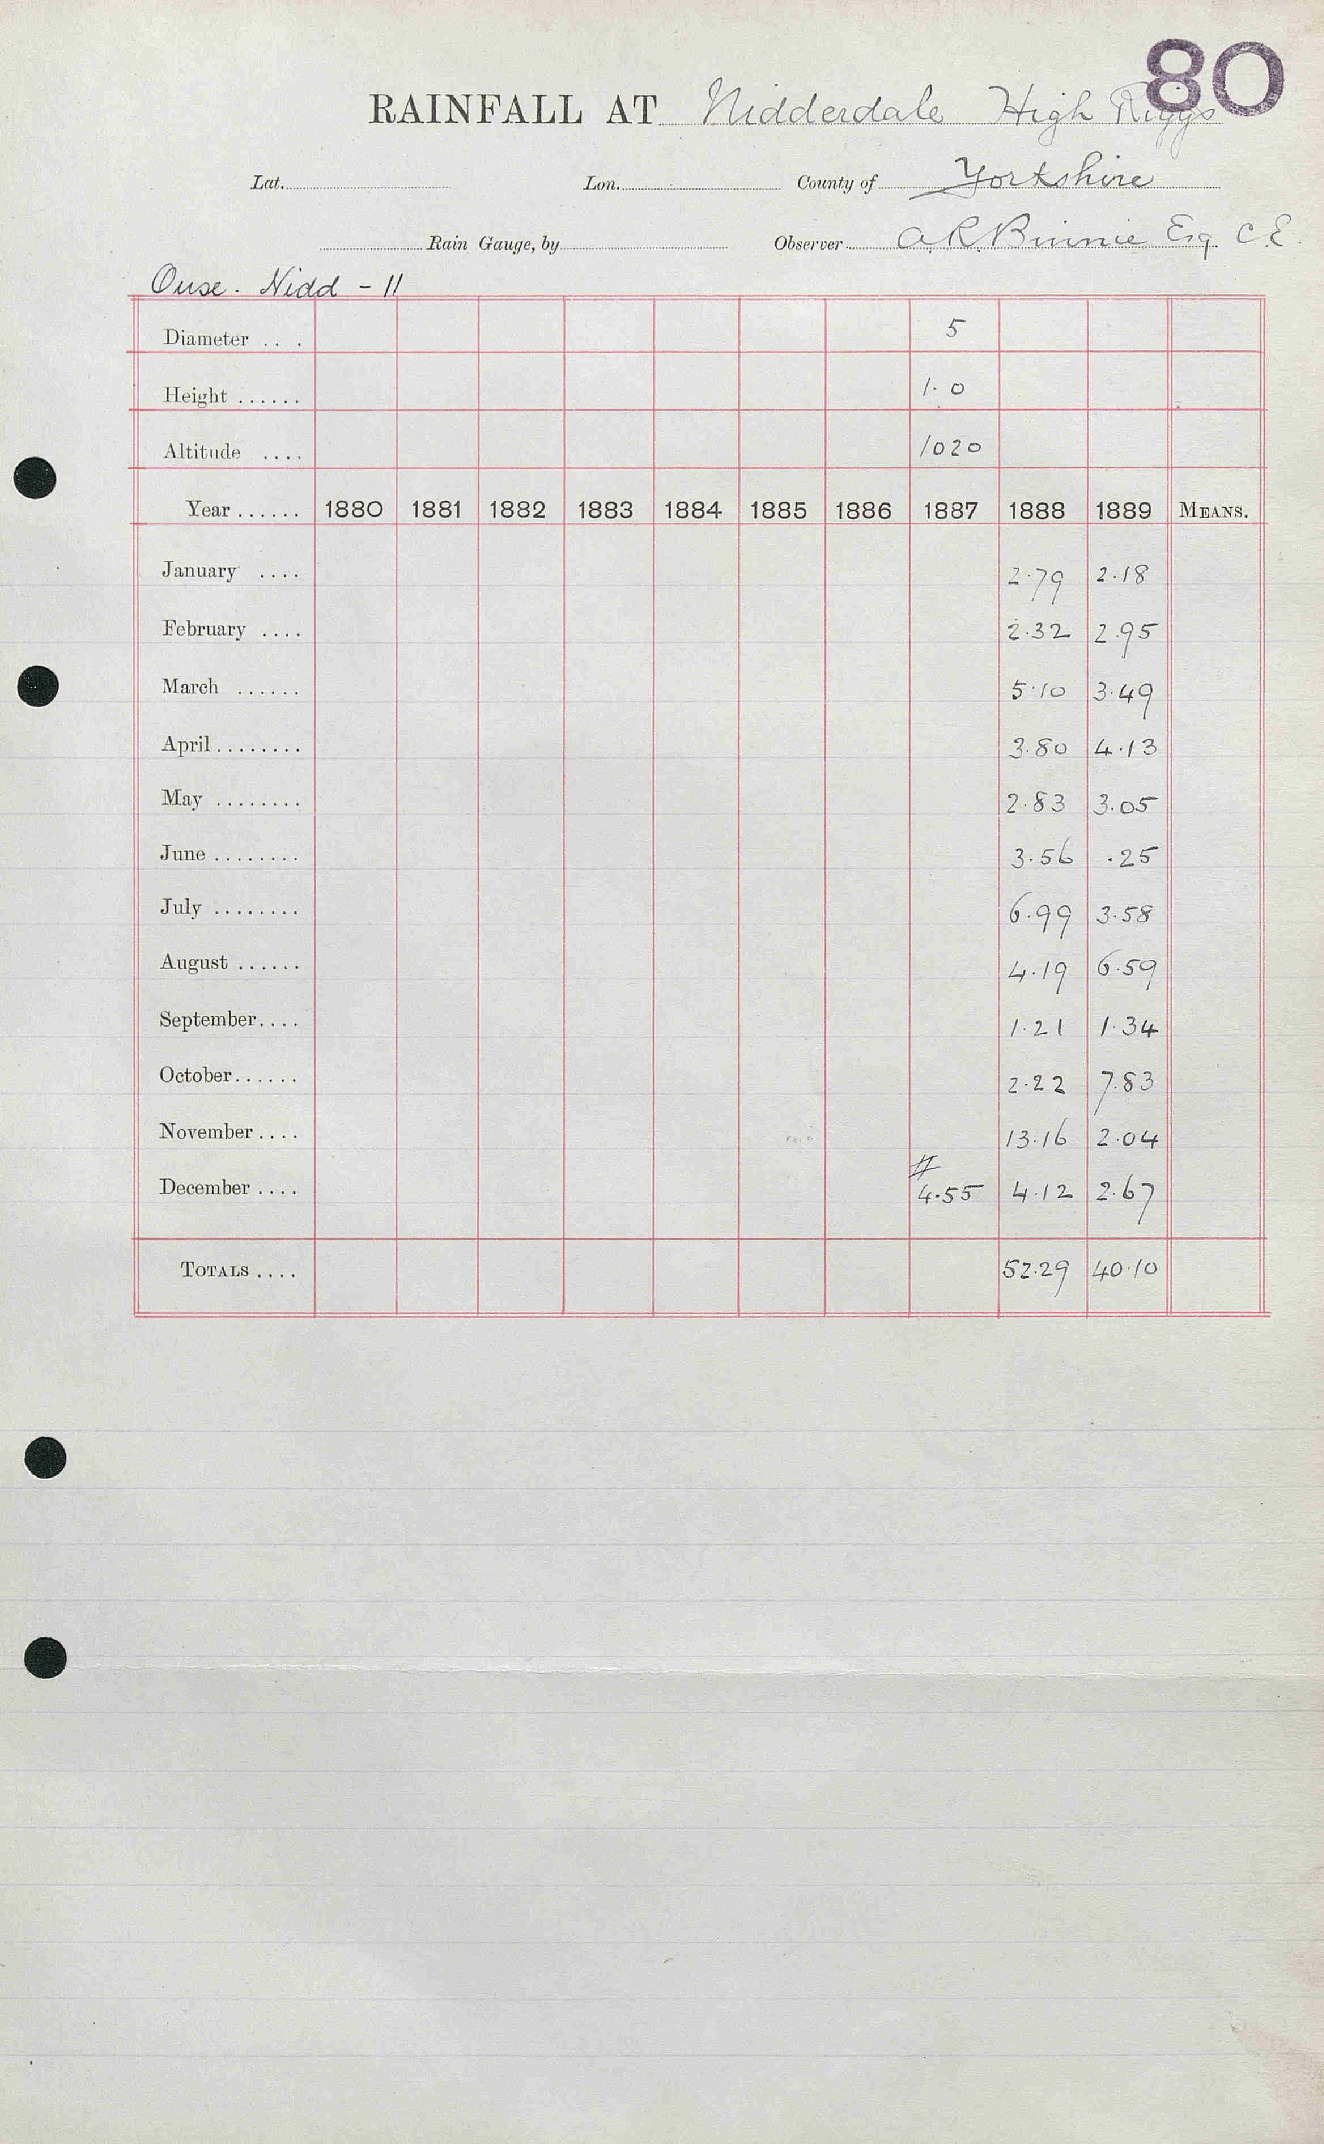 80
RAINFALL AT Nidderdale High Riggs
Lat. Lon. County of Yorkshire
Rain Gauge, by Observer A R Binnie Esq C.E.
Ouse. Nidd - 11
Diameter ... 5
Height ...... 1.0
Altitude .... 1020
Year ...... 1880 1881 1882 1883 1884 1885 1886 1887 1888 1889 MEANS.
January .... 2.79 2.18
February .... 2.32 2.95
March ...... 5.10 3.49
April ........ 3.80 4.13
May ........ 2.83 3.05
June ........ 3.56 .25
July ........ 6.99 3.58
August ...... 4.19 6.59
September.... 1.21 1.34
October...... 2.22 7.83
November .... 13.16 2.04
#
December .... 4.55 4.12 2.67
TOTALS .... 52.29 40.10